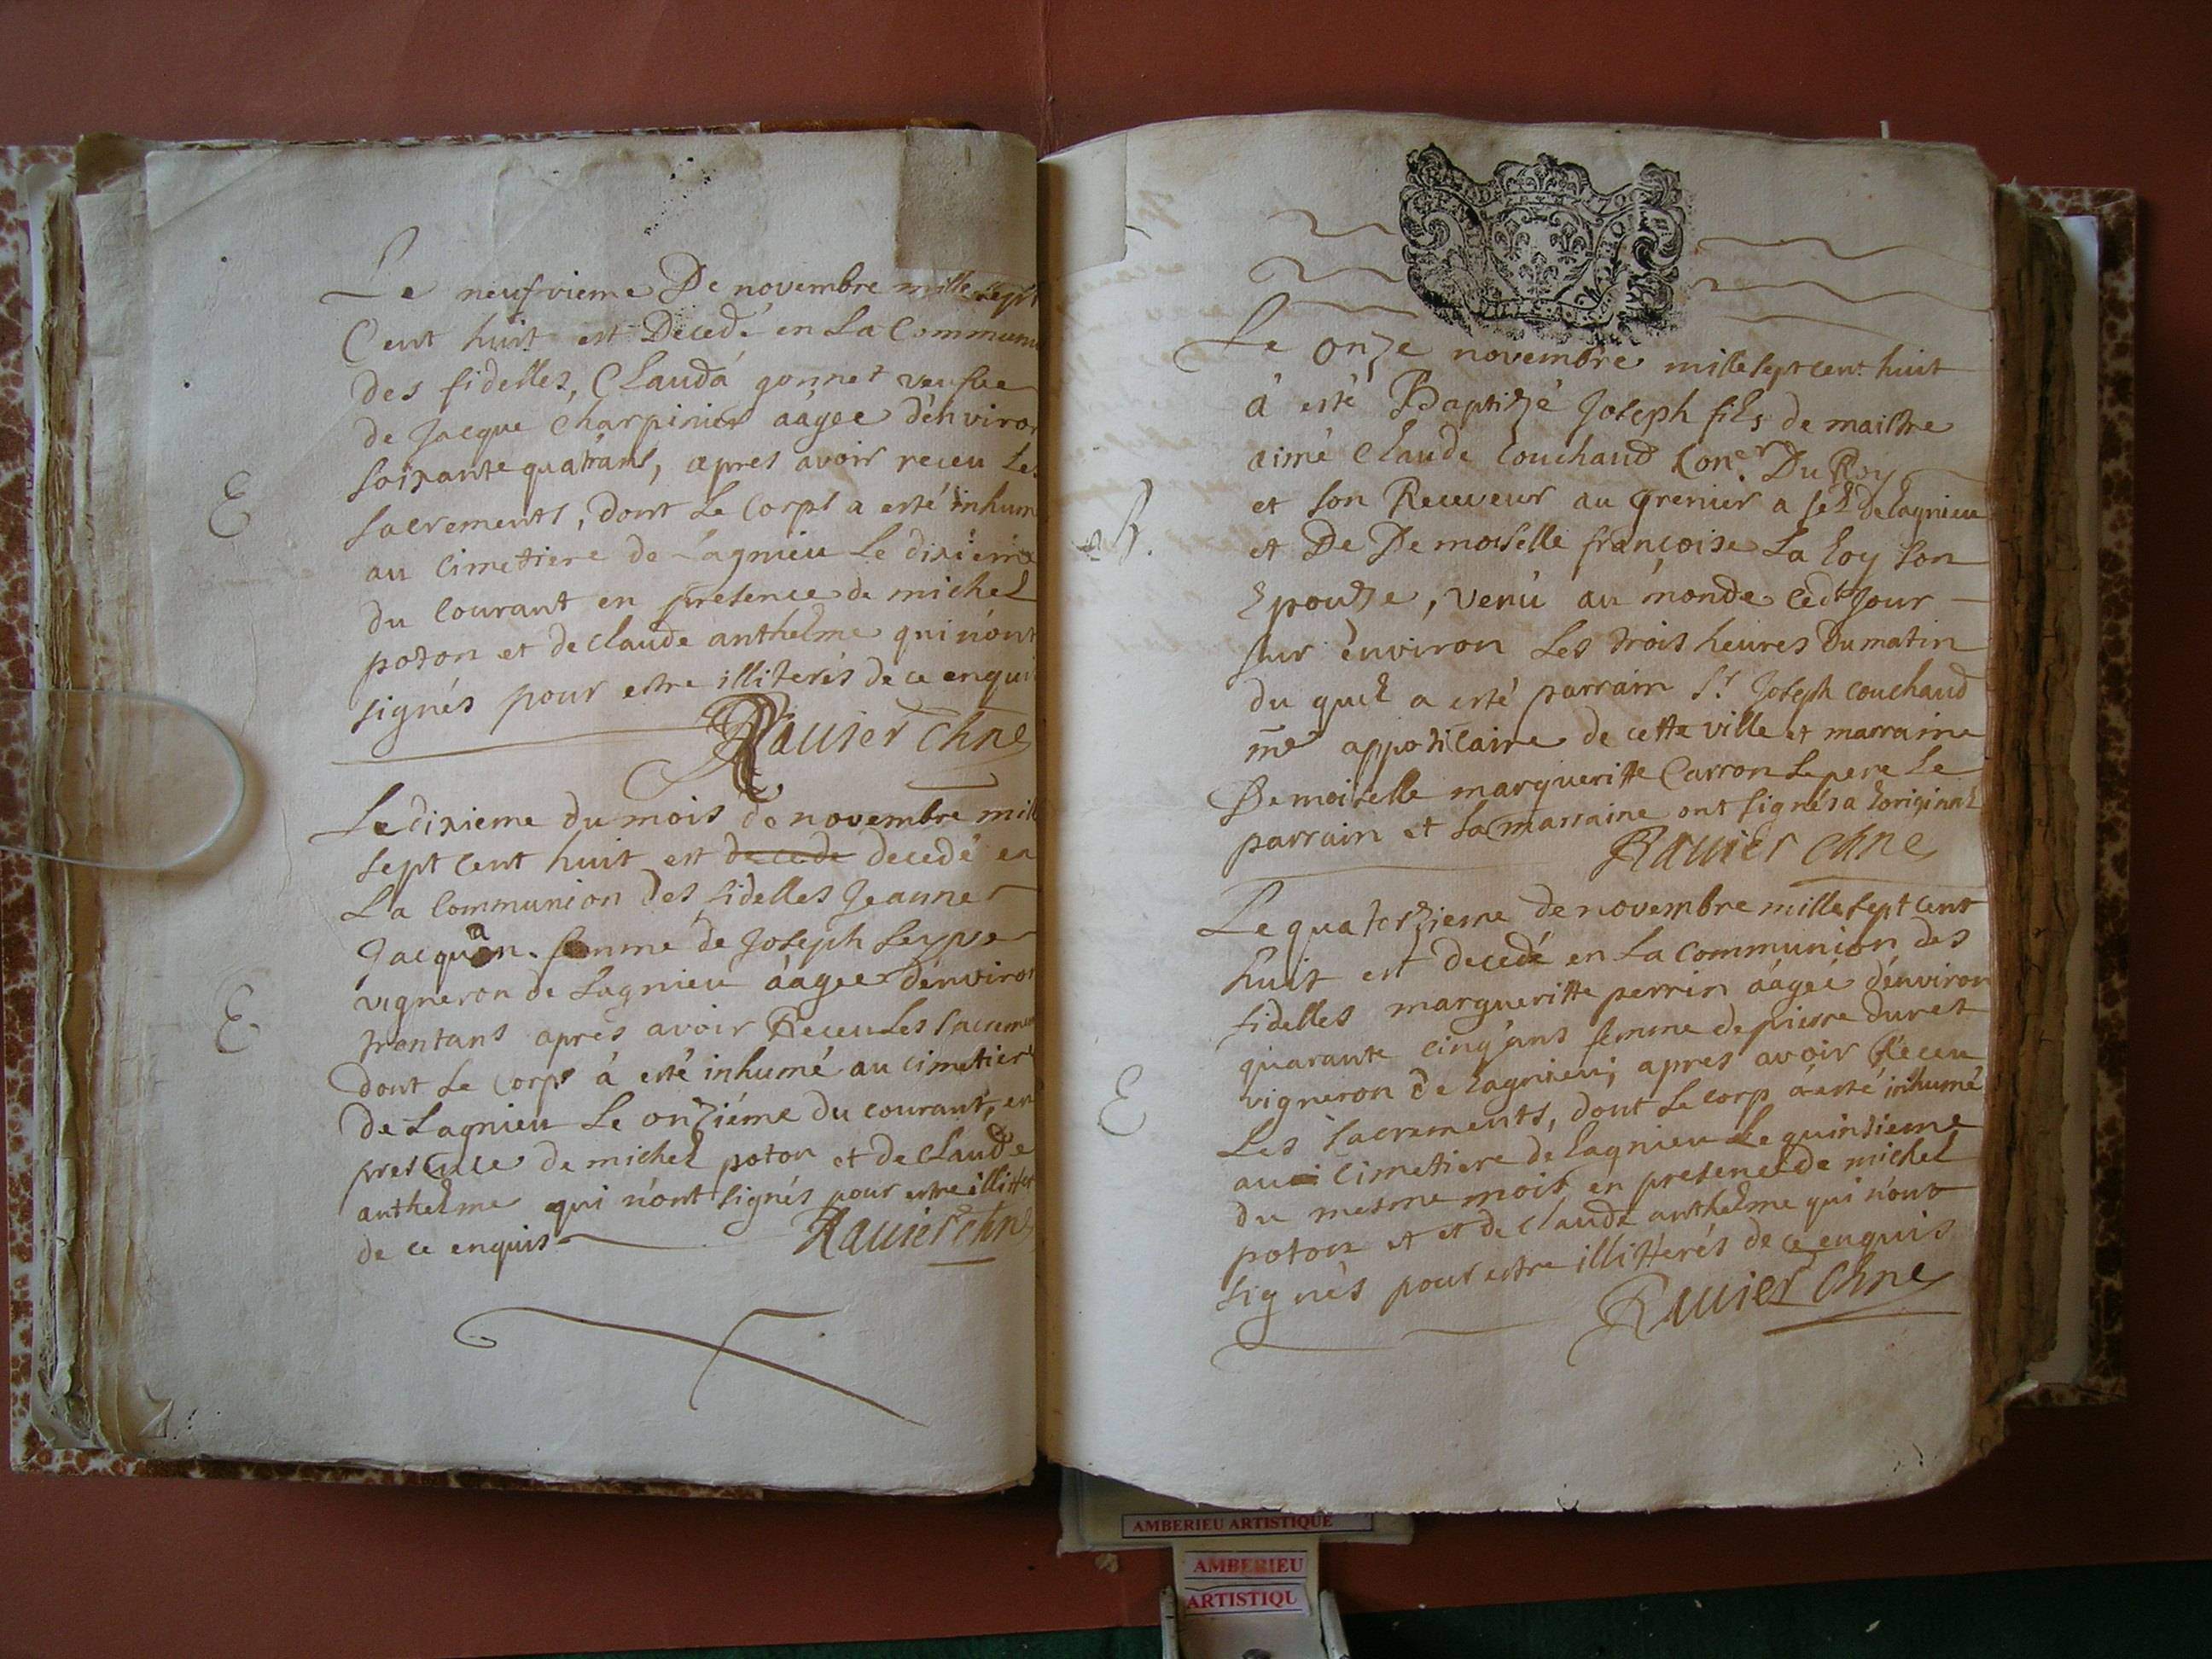 Le neufvieme De novembre mille sept
Cent huit est Decedé en La Commun
des fidelles, Clauda gonnet veufue
de Jacque Charpinier aágee d'énviron
soixante quatrans, apres avoir receu Les
sacrements, dont Le Corps a esté inhum
au Cimetiere de Lagnieu Le dixiéme
du Courant en presence de michel
poton et de Claude anthelme qui n'ont
signés pour estre illiterés de ce enquis
Rauier Chne
E
Le dixieme du mois de novembre mill
sept Cent huit est decede decedé en
La Communion des fidelles Jeanne
Jacquan femme de Joseph
vigneron de Lagnieu aágee d'énviron
trentans apres avoir Receu Les Sacrem
dont Le Corps à esté inhumé au Cimetiere
De Lagnieu Le onziéme du Courant, en
presence de michel poton et de Claude
anthelme qui n'ont signés pour estre illitter
de ce enquis
Rauier Chne
E
Le onze novembre mille sept cent huit
à esté Baptizé Joseph fils de maistre
aimé Claude Couchaud Coner Du Roy
et son Receveur au Grenier a sel de Lagnieu
et De Demoiselle françoise La Loy son
Epouze, Venú au monde cedt Jour
sur énviron Les trois heures du matin
du quel a esté parrain Sr Joseph Couchaud
me appoticaire de cette ville et marraine
Demoiselle margueritte Carron Le pere Le
parrain et La marraine ont signés a L'original
Rauier Chne
B.
Le quatorzieme de novembre mille sept cent
huit est decedé en La Communion des
fidelles margueritte perrin aágée d'énviron
quarante cinq ans femme de pierre duret
vigneron de Lagnieu, apres avoir Receu
Les Sacrements, dont Le Corp à esté inhumé
au Cimetiere de Lagnieu Le quinzieme
du mesme mois en presence de michel
poton et et de Claude anthelme qui n'ont
signés pour estre illitterés de ce enquis
Rauier Chne
E
AMBERIEU ARTISTIQUE
AMBERIEU
ARTISTIQU